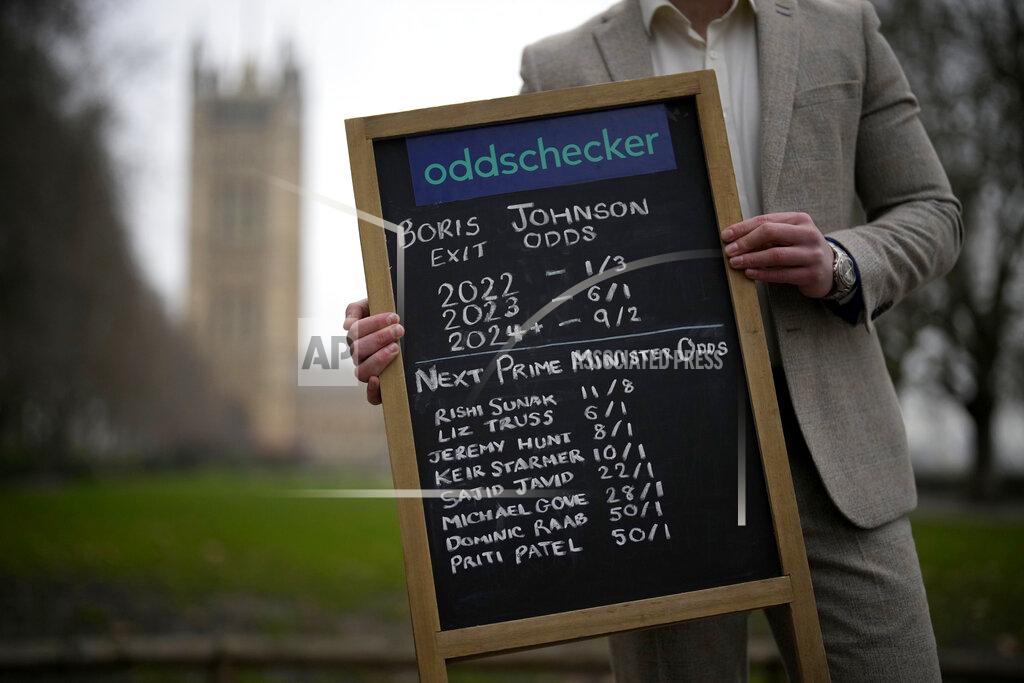 oddschecker
BORIS JOHNSON
EXIT ODDS
2022 - 1/3
2023 - 6/1
2024+ - 9/2
NEXT PRIME MINISTER ODDS
RISHI SUNAK 11/8
LIZ TRUSS 6/1
JEREMY HUNT 8/1
KEIR STARMER 10/1
SAJID JAVID 22/1
MICHAEL GOVE 28/1
DOMINIC RAAB 50/1
PRITI PATEL 50/1
AP ASSOCIATED PRESS